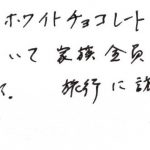 ホワイトチョコレート
いて 家族 全員
て. 旅行に